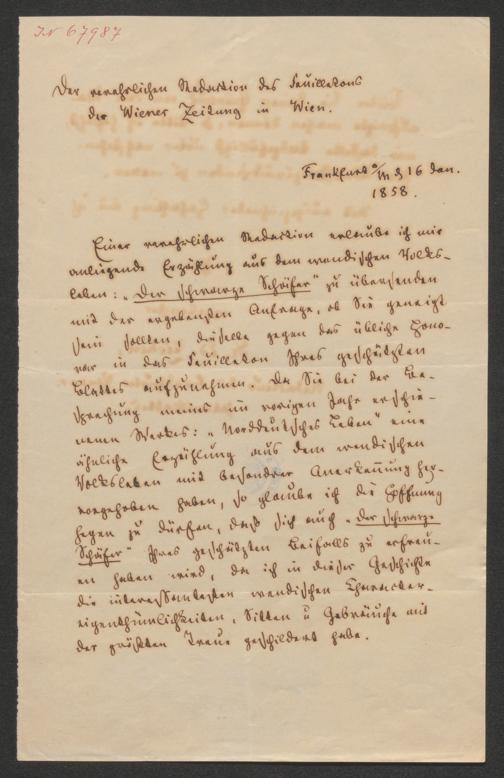 IN 67987
Der verehrlichen Redaction des Feuilletons
der Wiener Zeitung in Wien.
Frankfurt a/M d 16 Jan.
1858.
Einer verehrlichen Redaction erlaube ich mir
anliegende Erzählung aus dem wendischen Volks-
leben: „Der schwarze Schäfer" zu übersenden
mit der ergebensten Anfrage, ob Sie geneigt
sein sollten, dieselbe gegen das übliche Hono-
rar in das Feuilleton Ihres geschätzten
Blattes aufzunehmen. Da Sie bei der Be-
sprechung meines im vorigen Jahr erschie-
nenen Werkes: „Norddeutsches Leben" eine
ähnliche Erzählung aus dem wendischen
Volksleben mit besondrer Anerkennung her-
vorgehoben haben, so glaube ich die Hoffnung
hegen zu dürfen, daß sich auch „Der schwarze
Schäfer" Ihres geschätzten Beifalls zu erfreu-
en haben wird, da ich in dieser Geschichte
die interessantesten wendischen Character-
eigenthümlichkeiten, Sitten u Gebräuche mit
der größten Treue geschildert habe.